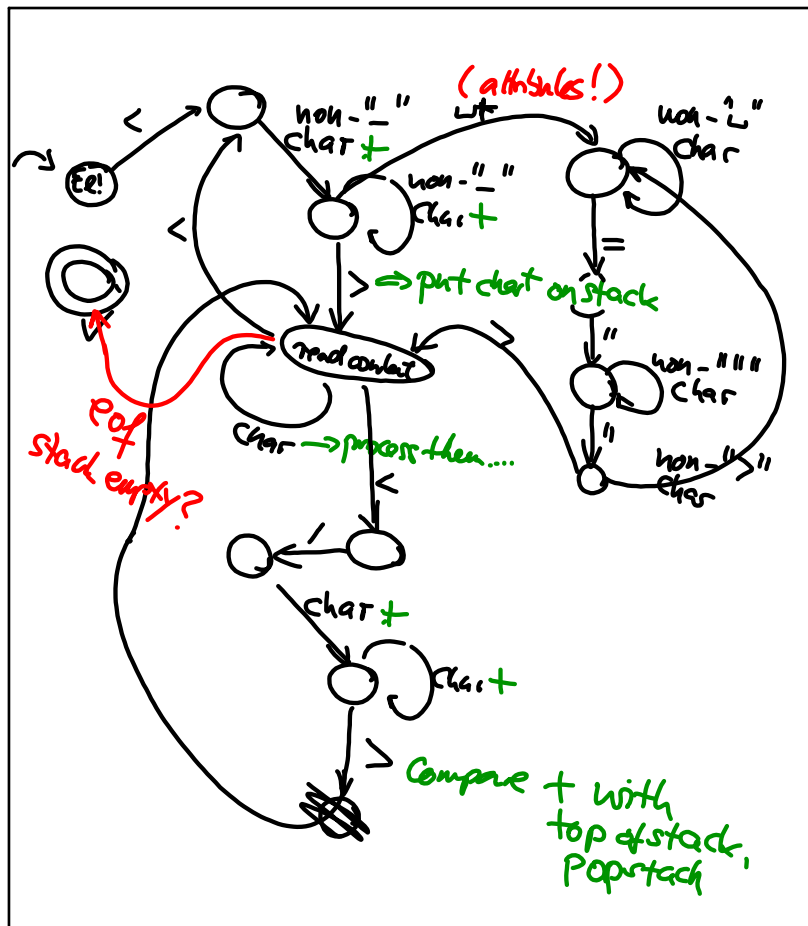 (attributes!)
<
non-"␣"
char +
␣+
non-"␣"
char
non-"␣"
char +
<
=
> ⇒ put char+ on stack
"
>
read content
non-"""
char
eof
+
stack empty?
char → process them....
"
non-">"
char
<
/
char +
char +
>
Compare + with
top of stack,
Popstack